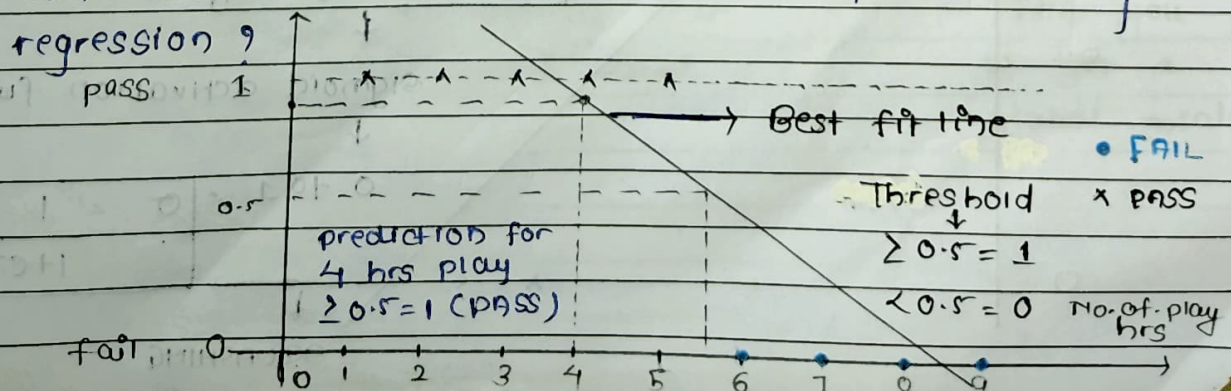 regression ?
pass 1
Best fit line
• FAIL
0.5
Threshold
x PASS
prediction for
4 hrs play
≥ 0.5 = 1 (PASS)
≥ 0.5 = 1
< 0.5 = 0
No. of play
hrs
fail 0
0 1 2 3 4 5 6 7 8 9